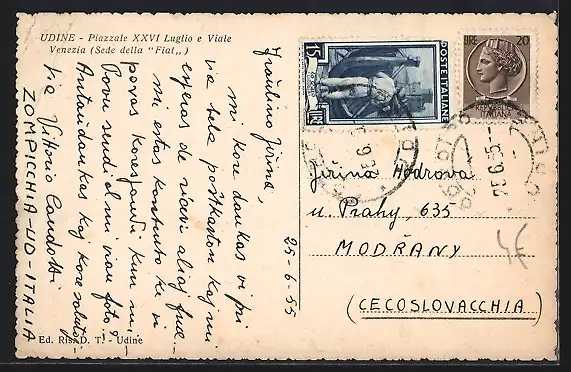 UDINE - Piazzale XXVI Luglio e Viale
Venezia (Sede della "Fiat„)
25-6-55
Fraŭlino Jiřina,
mi kore dankas vi pri
via bela poŝtkarton kaj mi
esperas de ricevi aliaj ĉar
mi estas kontenta ke vi
povas korespondi kun mi.
Povu sendi al mi vian foto?
Antaŭdankas kaj kore salutas
Via Vittorio Candotti
ZOMPICCHIA-UD-ITALIA
Ed. Ris. D. T. - Udine
15
LIRE
POSTE ITALIANE
LIRE 20
REPUBBLICA
ITALIANA
Jiřina Hodrova
u. Prahy, 635
MODŘANY
(CECOSLOVACCHIA)
4€